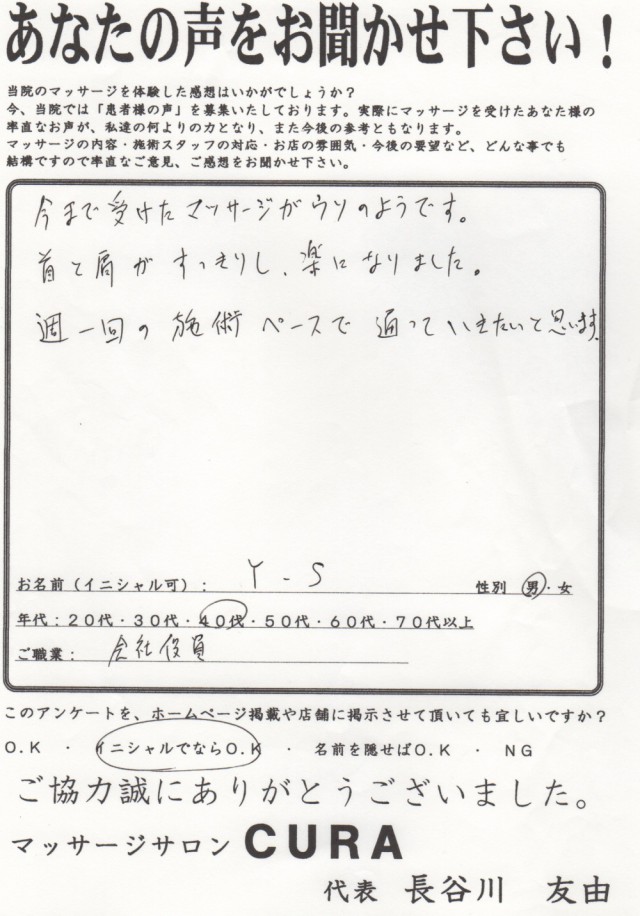 あなたの声をお聞かせ下さい!
当院のマッサージを体験した感想はいかがでしょうか?
今、当院では「患者様の声」を募集いたしております。実際にマッサージを受けたあなた様の
率直なお声が、私達の何よりの力となり、また今後の参考ともなります。
マッサージの内容・施術スタッフの対応・お店の雰囲気・今後の要望など、どんな事でも
結構ですので率直なご意見、ご感想をお聞かせ下さい。
今まで受けたマッサージがウソのようです。
首と肩がすっきりし、楽になりました。
週一回の施術ペースで通っていきたいと思います。
お名前(イニシャル可): Y-S 性別 男・女
年代:20代・30代・40代・50代・60代・70代以上
ご職業: 会社役員
このアンケートを、ホームページ掲載や店舗に掲示させて頂いても宜しいですか?
O.K ・ イニシャルでならO.K ・ 名前を隠せばO.K ・ NG
ご協力誠にありがとうございました。
マッサージサロン CURA
代表 長谷川 友由